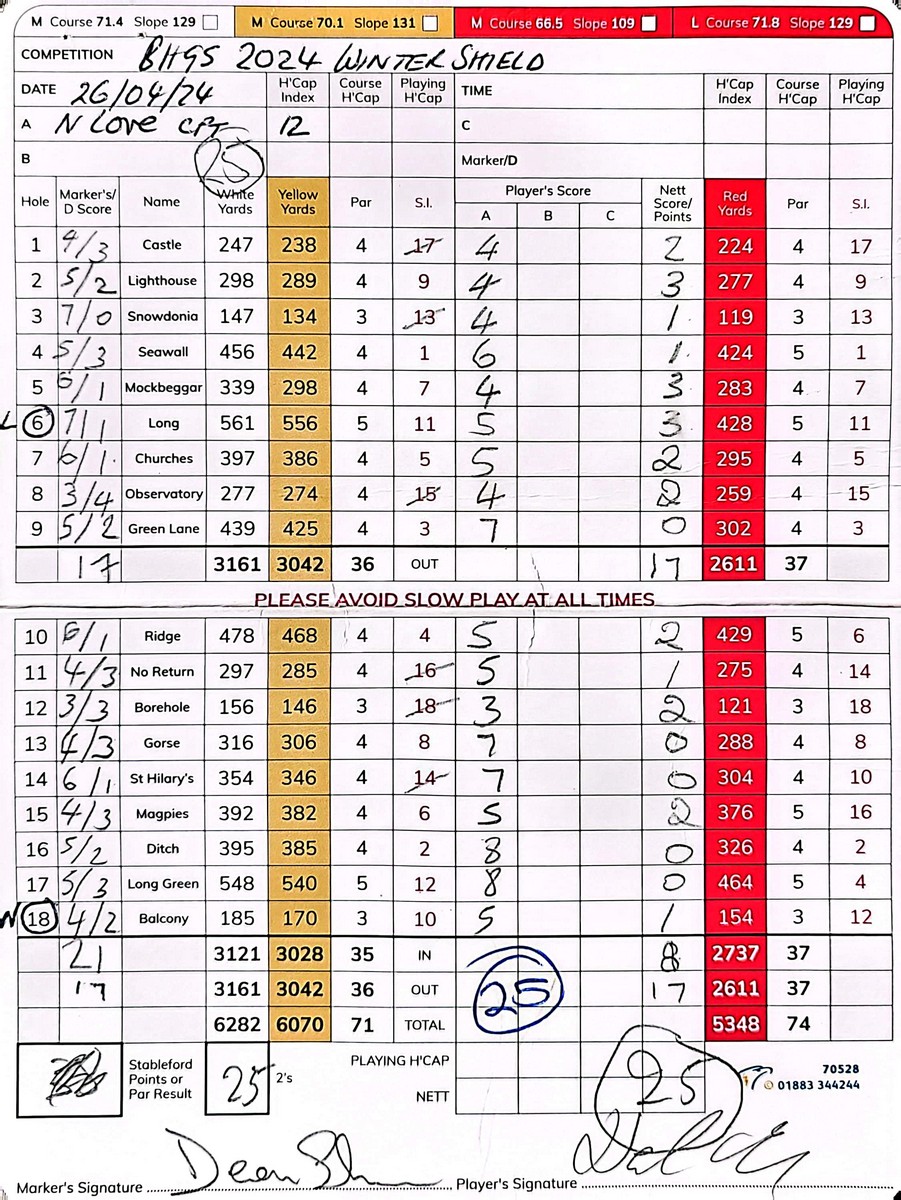 M Course 71.4 Slope 129 M Course 70.1 Slope 131 M Course 66.5 Slope 109 L Course 71.8 Slope 129
COMPETITION BHGS 2024 WINTER SHIELD
DATE 26/04/24 H'Cap Index Course H'Cap Playing H'Cap TIME H'Cap Index Course H'Cap Playing H'Cap
A N LOVE CPT 12 C
B 25 Marker/D
Hole Marker's/ D Score Name White Yards Yellow Yards Par S.I. Player's Score A B C Nett Score/ Points Red Yards Par S.I.
1 4/3 Castle 247 238 4 17 4 2 224 4 17
2 5/2 Lighthouse 298 289 4 9 4 3 277 4 9
3 7/0 Snowdonia 147 134 3 13 4 1 119 3 13
4 5/3 Seawall 456 442 4 1 6 1 424 5 1
5 6/1 Mockbeggar 339 298 4 7 4 3 283 4 7
L 6 7/1 Long 561 556 5 11 5 3 428 5 11
7 6/1 Churches 397 386 4 5 5 2 295 4 5
8 3/4 Observatory 277 274 4 15 4 2 259 4 15
9 5/2 Green Lane 439 425 4 3 7 0 302 4 3
17 3161 3042 36 OUT 17 2611 37
PLEASE AVOID SLOW PLAY AT ALL TIMES
10 6/1 Ridge 478 468 4 4 5 2 429 5 6
11 4/3 No Return 297 285 4 16 5 1 275 4 14
12 3/3 Borehole 156 146 3 18 3 2 121 3 18
13 4/3 Gorse 316 306 4 8 7 0 288 4 8
14 6/1 St Hilary's 354 346 4 14 7 0 304 4 10
15 4/3 Magpies 392 382 4 6 5 2 376 5 16
16 5/2 Ditch 395 385 4 2 8 0 326 4 2
17 5/3 Long Green 548 540 5 12 8 0 464 5 4
N 18 4/2 Balcony 185 170 3 10 5 1 154 3 12
21 3121 3028 35 IN 8 2737 37
17 3161 3042 36 OUT 25 17 2611 37
6282 6070 71 TOTAL 5348 74
Stableford Points or Par Result 25 2's PLAYING H'CAP 25 70528
NETT © 01883 344244
Marker's Signature Dean Player's Signature